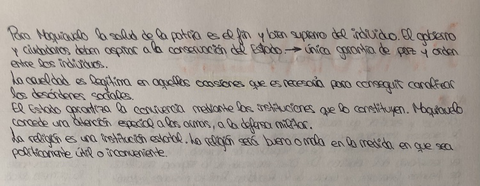 Para Maquiavelo la salud de la patria es el fin y bien supremo del individuo. El gobierno
y ciudadanos deben aspirar a la conservación del Estado → única garantía de paz y orden
entre los individuos.
La crueldad es legítima en aquellas ocasiones que es necesaria para conseguir canalizar
los desórdenes sociales.
El Estado garantiza la convivencia mediante las instituciones que lo constituyen. Maquiavelo
concede una atención especial a las armas, a la defensa militar.
La religión es una institución estatal. La religión será buena o mala en la medida en que sea
políticamente útil o inconveniente.